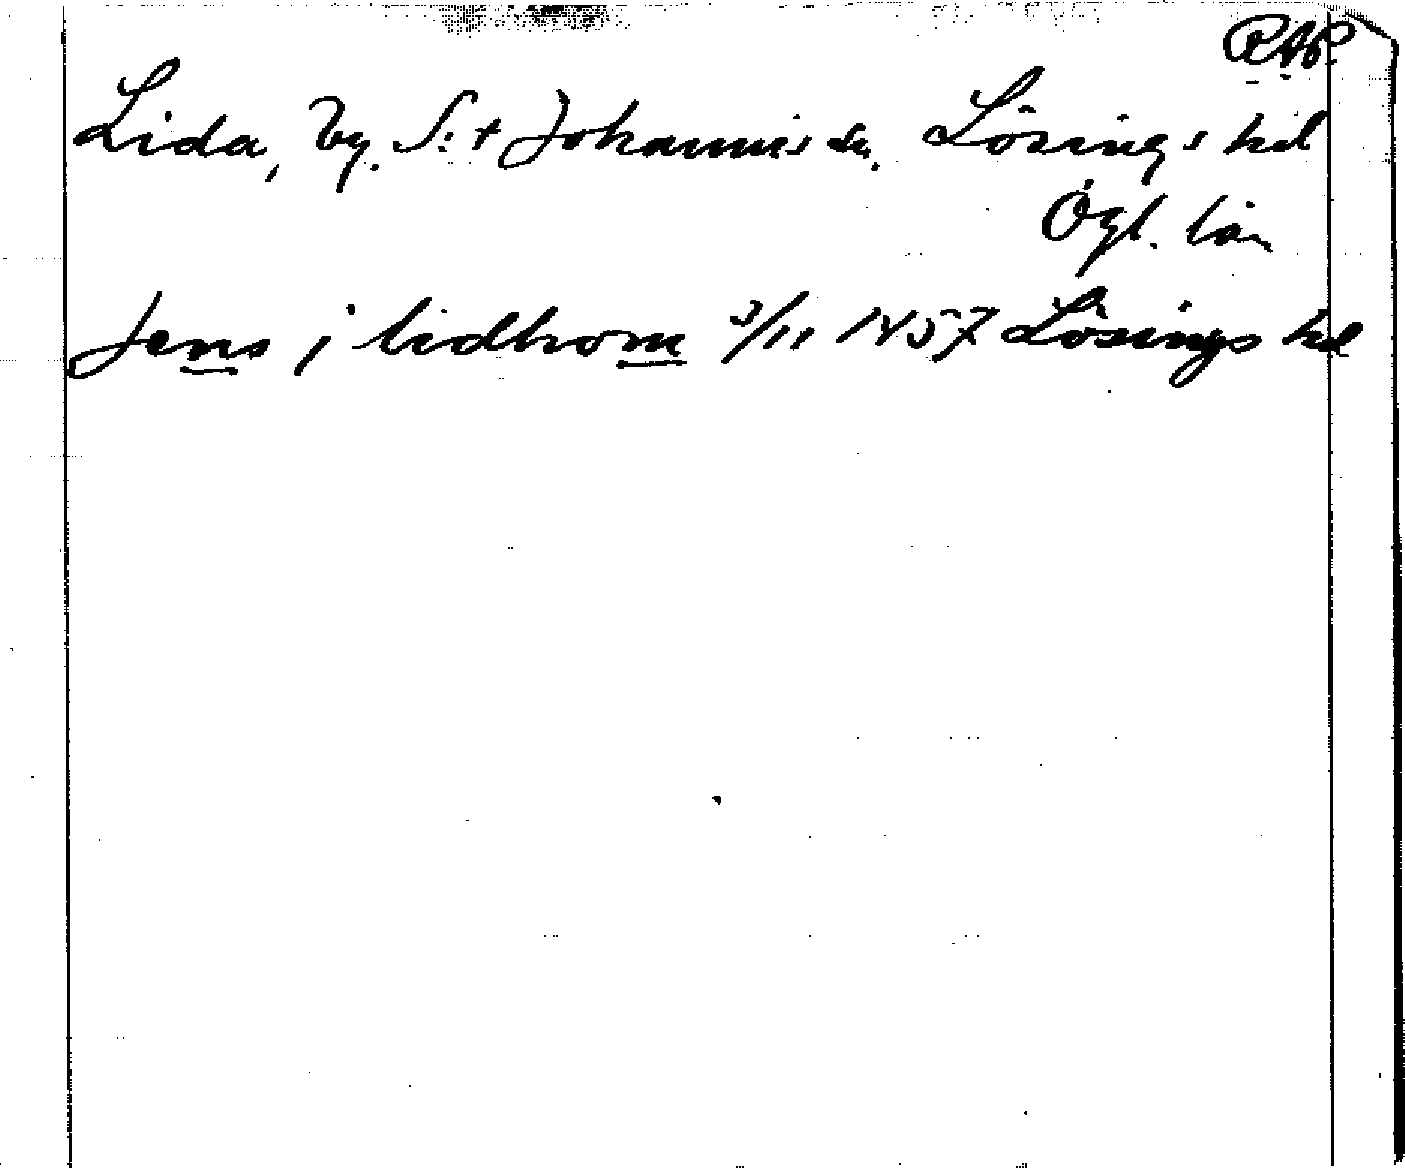 RAP.
Lida, by. S:t Johannis sn. Lösings hd
Ögl. län
Jens i lidhom 3/11 1457 Lösings hd